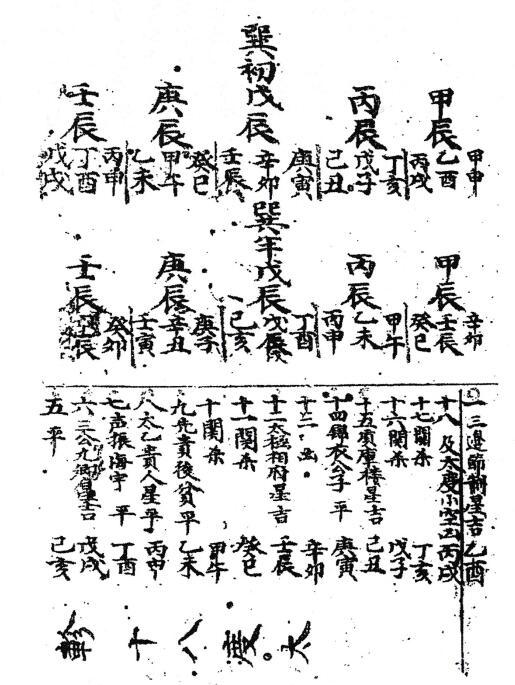 甲辰
甲申
乙酉
丙戌
丙辰
丁亥
戊子
己丑
巽初戊辰
庚寅
辛卯
壬辰
庚辰
癸巳
甲午
乙未
壬辰
丙申
丁酉
戊戌
甲辰
辛卯
壬辰
癸巳
丙辰
甲午
乙未
丙申
巽年戊辰
丁酉
己亥
庚辰
庚子
辛丑
壬寅
壬辰
癸卯
一三邊節制星吉乙酉
十八 及太虔小空亡丙戌
十七關杀 丁亥
十六關杀 戊子
十五廣庫樓星吉 己丑
十四錦衣公子 平 庚寅
十三 凶 辛卯
十二太極相府星吉 壬辰
十一關杀 癸巳
十關杀 甲午
九先貴後貧平 乙未
八太乙貴人星平 丙申
七声振海宇 平 丁酉
六三公九卿星吉 戊戌
五平 己亥
太虔八十軫